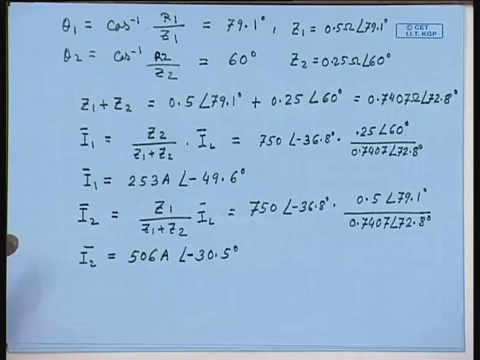 θ₁ = cos⁻¹ R₁/Z₁ = 79.1°, Z₁ = 0.5Ω∠79.1°
© CET
I.I.T. KGP
θ₂ = cos⁻¹ R₂/Z₂ = 60° Z₂ = 0.25Ω∠60°
Z₁+Z₂ = 0.5∠79.1° + 0.25∠60° = 0.7407Ω∠72.8°
Ī₁ = Z₂/(Z₁+Z₂) · Ī_L = 750∠-36.8° · .25∠60°/0.7407∠72.8°
Ī₁ = 253A∠-49.6°
Ī₂ = Z₁/(Z₁+Z₂) Ī_L = 750∠-36.8° · 0.5∠79.1°/0.7407∠72.8°
Ī₂ = 506A∠-30.5°